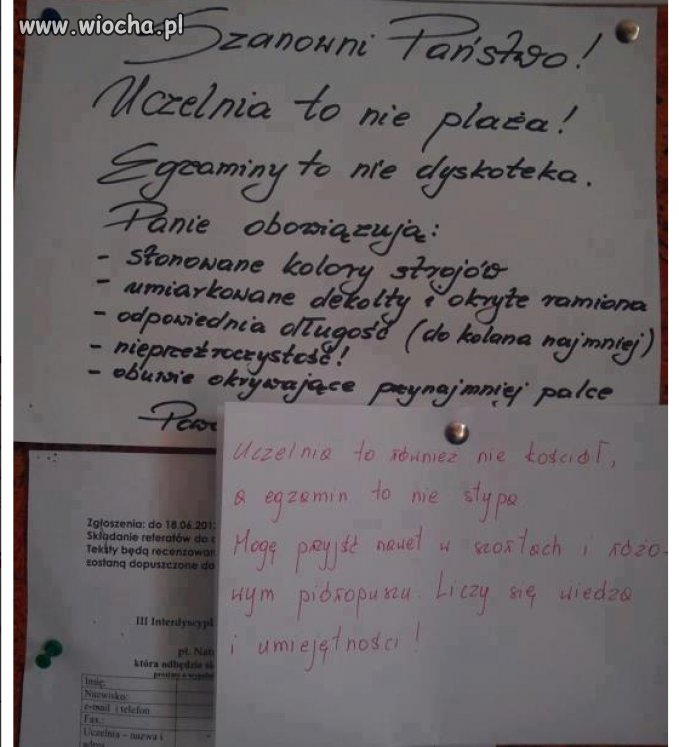 www.wiocha.pl
Szanowni Państwo!
Uczelnia to nie plaża!
Egzaminy to nie dyskoteka.
Panie obowiązują:
- stonowane kolory strojów
- umiarkowane dekolty i okryte ramiona
- odpowiednia długość (do kolana najmniej)
- nieprzeźroczystość!
- obuwie okrywające przynajmniej palce
Uczelnia to również nie kościół,
a egzamin to nie stypa
Mogę przyjść nawet w szortach i różo-
wym pióropuszu. Liczy się wiedza
i umiejętności!
Zgłoszenia: do 18.06.201
Składanie referatów do
Teksty będą recenzowan
zostaną dopuszczone do
III Interdyscypl
pt. Nau
która odbędzie się
Imię:
Nazwisko:
e-mail i telefon
Fax.:
Uczelnia – nazwa i
adres